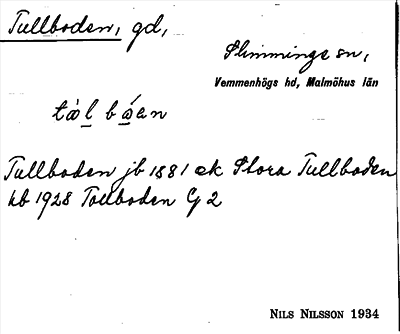 Tullboden, gd,
Slimminge sn,
Vemmenhögs hd, Malmöhus län
tàl bóen
Tullboden jb 1881 ek Stora Tullboden
kb 1928 Tollboden Gj 2
NILS NILSSON 1934